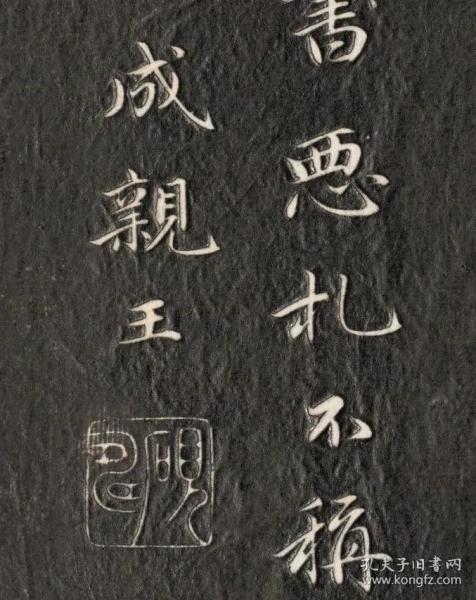 書惡札不稱
成親王
孔夫子旧书网
WWW.KONGFZ.COM